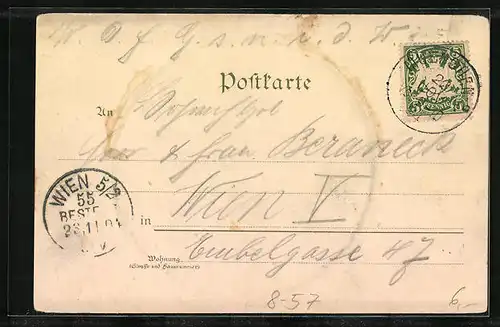 W. D. f. G. s. n. r. d. W
Postkarte
An
Herr & Frau Beraneck
in Wien V
Embelgasse 47
Wohnung
(Straße und Hausnummer)
WIEN 5/2
55
BESTE
23.11.01
8-57
6,-